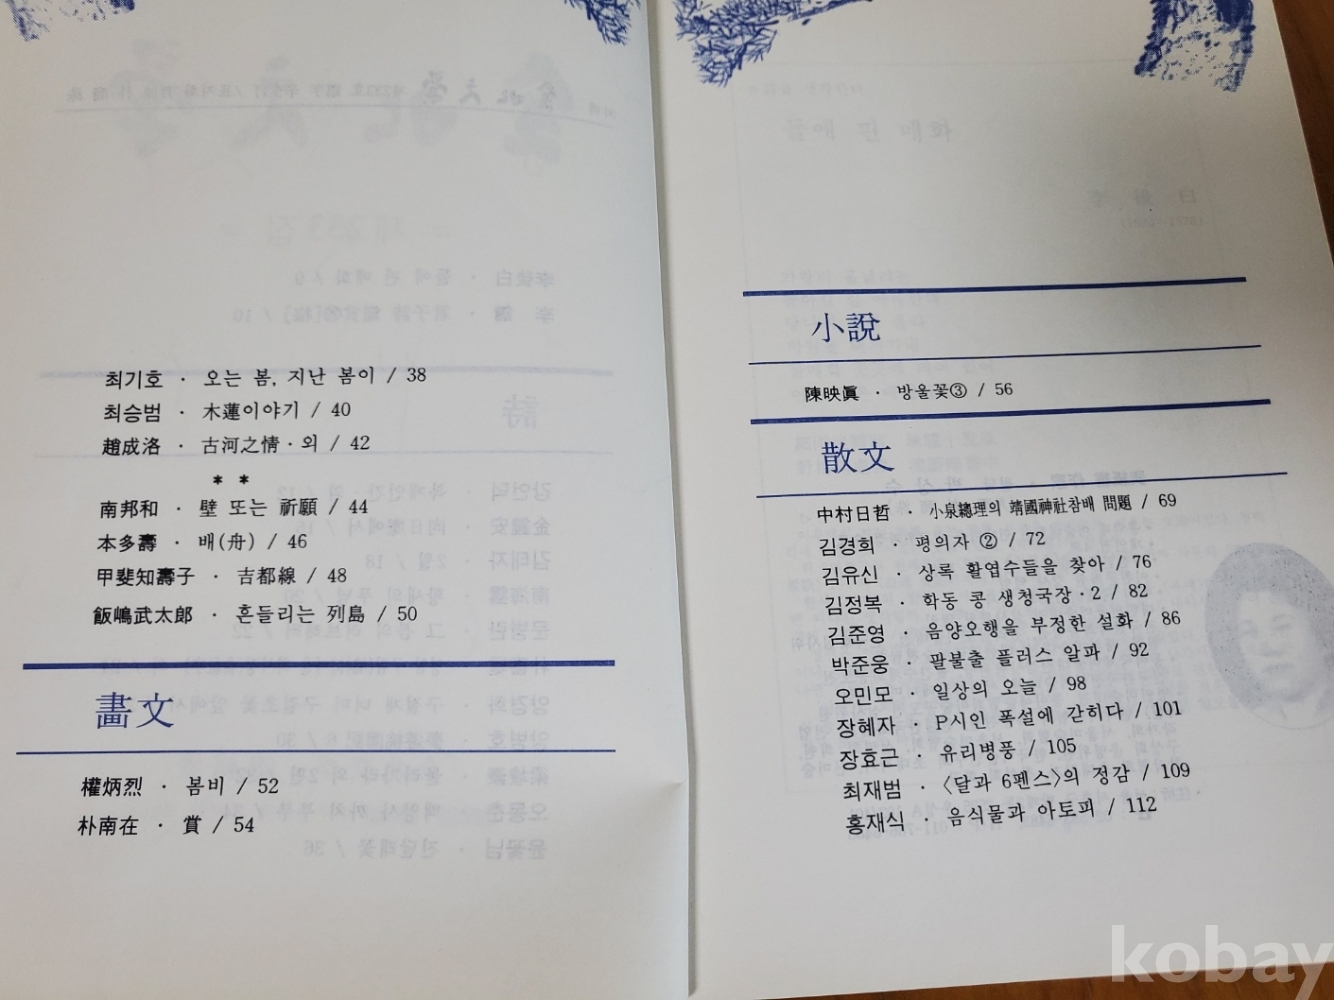 최기호 · 오는 봄, 지난 봄이 / 38
최승범 · 木蓮이야기 / 40
趙成洛 · 古河之情·외 / 42
* *
南邦和 · 壁 또는 祈願 / 44
本多壽 · 배(舟) / 46
甲斐知壽子 · 吉都線 / 48
飯嶋武太郎 · 흔들리는 列島 / 50
畵文
權炳烈 · 봄비 / 52
朴南在 · 賞 / 54
小說
陳映眞 · 방울꽃③ / 56
散文
中村日哲 · 小泉總理의 靖國神社참배 問題 / 69
김경희 · 평의자 ② / 72
김유신 · 상록 활엽수들을 찾아 / 76
김정복 · 학동 콩 생청국장·2 / 82
김준영 · 음양오행을 부정한 설화 / 86
박준웅 · 팔불출 플러스 알파 / 92
오민모 · 일상의 오늘 / 98
장혜자 · P시인 폭설에 갇히다 / 101
장효근 · 유리병풍 / 105
최재범 · 〈달과 6펜스〉의 정감 / 109
홍재식 · 음식물과 아토피 / 112
kobay